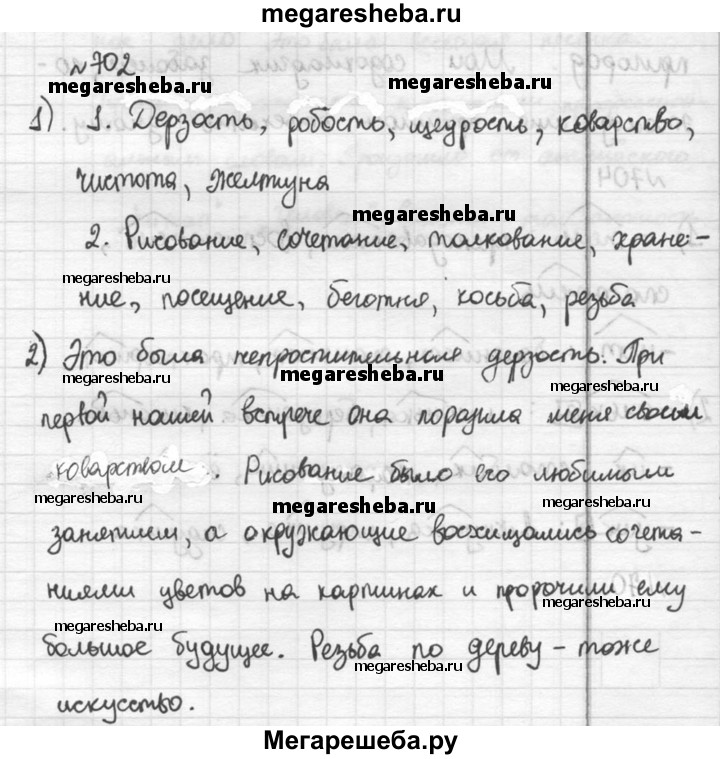 megaresheba.ru
№702
megaresheba.ru megaresheba.ru
1) 1. Дерзость, робость, щедрость, коварство,
чистота, желтуна
megaresheba.ru
2. Рисование, сочетание, толкование, хране-
megaresheba.ru
ние, посещение, беготня, косьба, резьба
2) Это была непростительная дерзость. При
megaresheba.ru megaresheba.ru megaresheba.ru
первой нашей встрече она поразила меня своим
коварством. Рисование было его любимым
megaresheba.ru megaresheba.ru megaresheba.ru
занятием, а окружающие восхищались сочета-
ниями цветов на картинах и пророчили ему
megaresheba.ru
megaresheba.ru
большое будущее. Резьба по дереву – тоже
megaresheba.ru
искусство.
Мегарешеба.ру